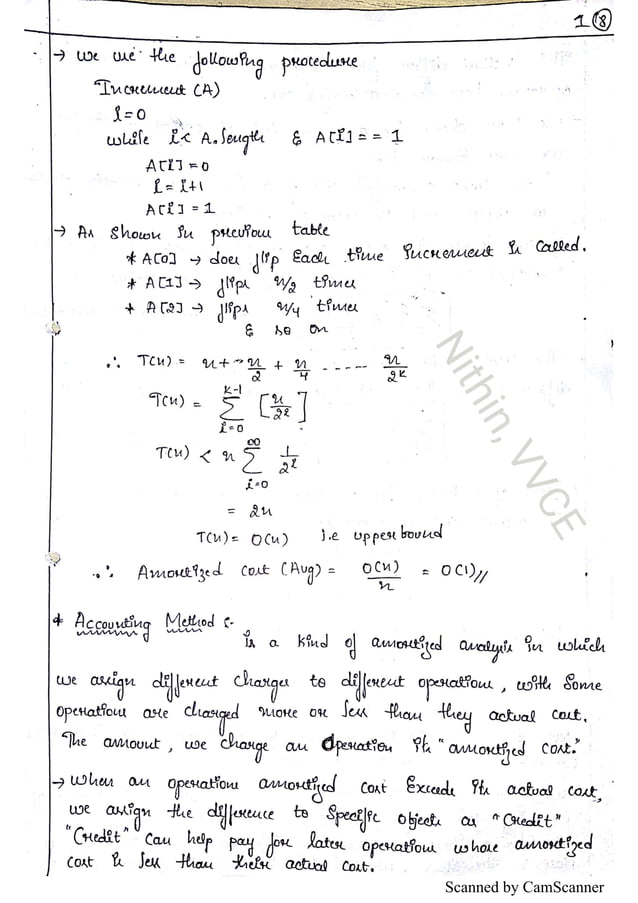 1 (8)
→ we use the following procedure
Increment (A)
i=0
while i< A.length & A[i] = = 1
A[i] = 0
i = i+1
A[i] = 1
→ As shown in previous table
* A[0] → does flip Each time increment is called.
* A[1] → flips n/2 times
* A[2] → flips n/4 times
& so on
∴ T(n) = n + → n/2 + n/4 ..... n/2^k
T(n) = ∑_{i=0}^{k-1} [n/2^i]
T(n) < n ∑_{i=0}^{∞} 1/2^i
= 2n
T(n) = O(n) i.e upper bound
∴ Amortized cost (Avg) = O(n)/n = O(1)//
* Accounting Method :-
is a kind of amortized analysis in which
we assign different charges to different operations, with Some
operations are charged more or less than they actual cost.
The amount, we charge an Operation its "amortized cost."
→ When an operations amortized cost Exceeds its actual cost,
we assign the difference to Specific objects as "Credit"
"Credit" Can help pay for later operations whose amortized
cost is less than their actual cost.
Nithin, VVCE
Scanned by CamScanner